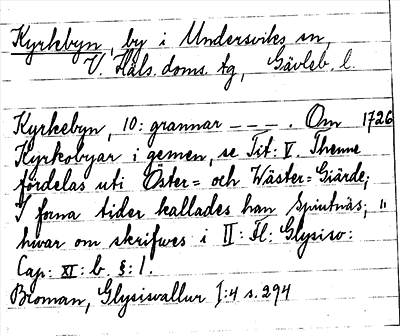 Kyrkebyn, by i Undersviks sn,
V. Häls. doms. tg, Gävleb. l.
Kyrkebyn, 10: grannar _ _ _ . Om 1726
Kyrkobyar i gemen, se Tit: V. Thenne
fördelas uti Öster= och Wäster=Giärde;
I forna tider kallades han Spiutnäs; "
hwar om skrifwes i II: Fl: Glysiso:
Cap: XI: b. §: 1.
Broman, Glysisvallur I:4 s. 294